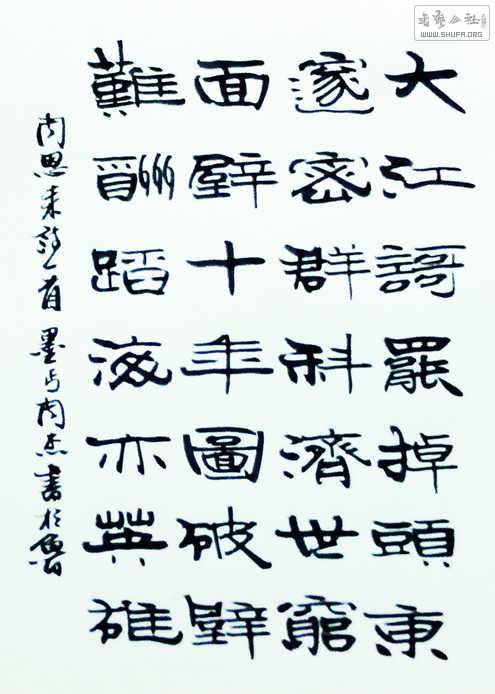 大江謌罷掉頭東
邃密群科濟世窮
面壁十年圖破壁
難酬蹈海亦英雄
周恩来詩一首 墨与周杰書於魯
书艺公社
WWW.SHUFA.ORG